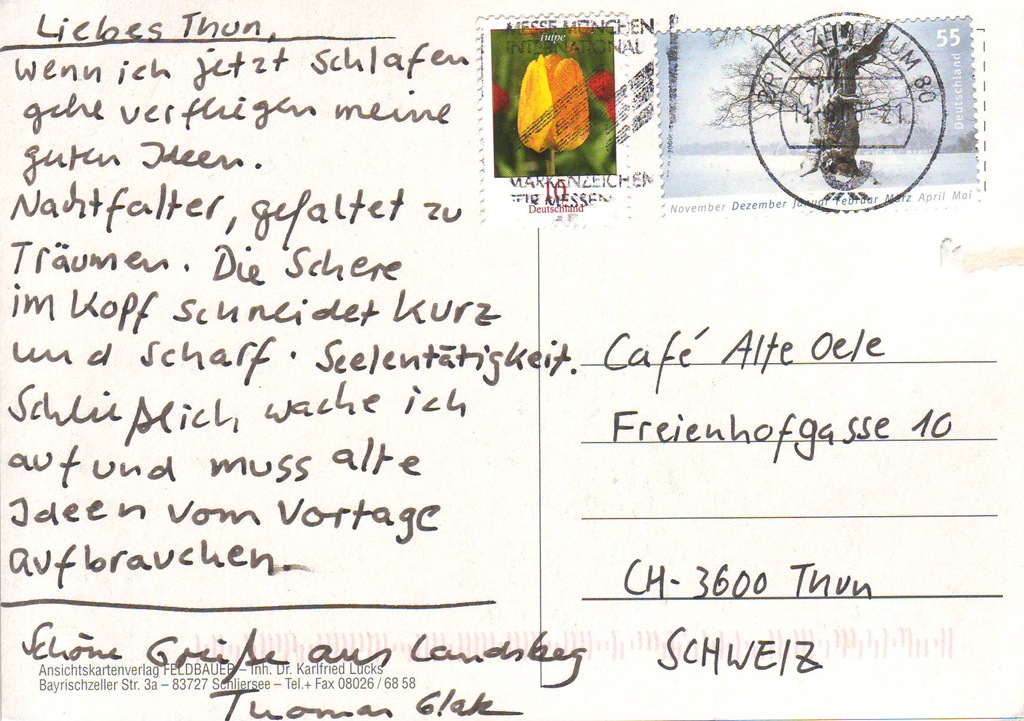 Liebes Thun,
Wenn ich jetzt schlafen
gehe verfliegen meine
guten Ideen.
Nachtfalter, gefaltet zu
Träumen. Die Schere
im Kopf schneidet kurz
und scharf. Seelentätigkeit.
Schließlich wache ich
auf und muss alte
Ideen vom Vortage
aufbrauchen.
Schöne Grüße aus Landsberg
Thomas Glatz
Ansichtskartenverlag FELDBAUER – Inh. Dr. Karlfried Lucks
Bayrischzeller Str. 3a – 83727 Schliersee – Tel.+ Fax 08026 / 68 58
MESSE MÜNCHEN
INTERNATIONAL
Tulpe
MARKENZEICHEN
FÜR MESSEN
10
Deutschland
BRIEFZENTRUM 80
55
Deutschland
November Dezember Januar Februar März April Mai
Café Alte Oele
Freienhofgasse 10
CH-3600 Thun
SCHWEIZ